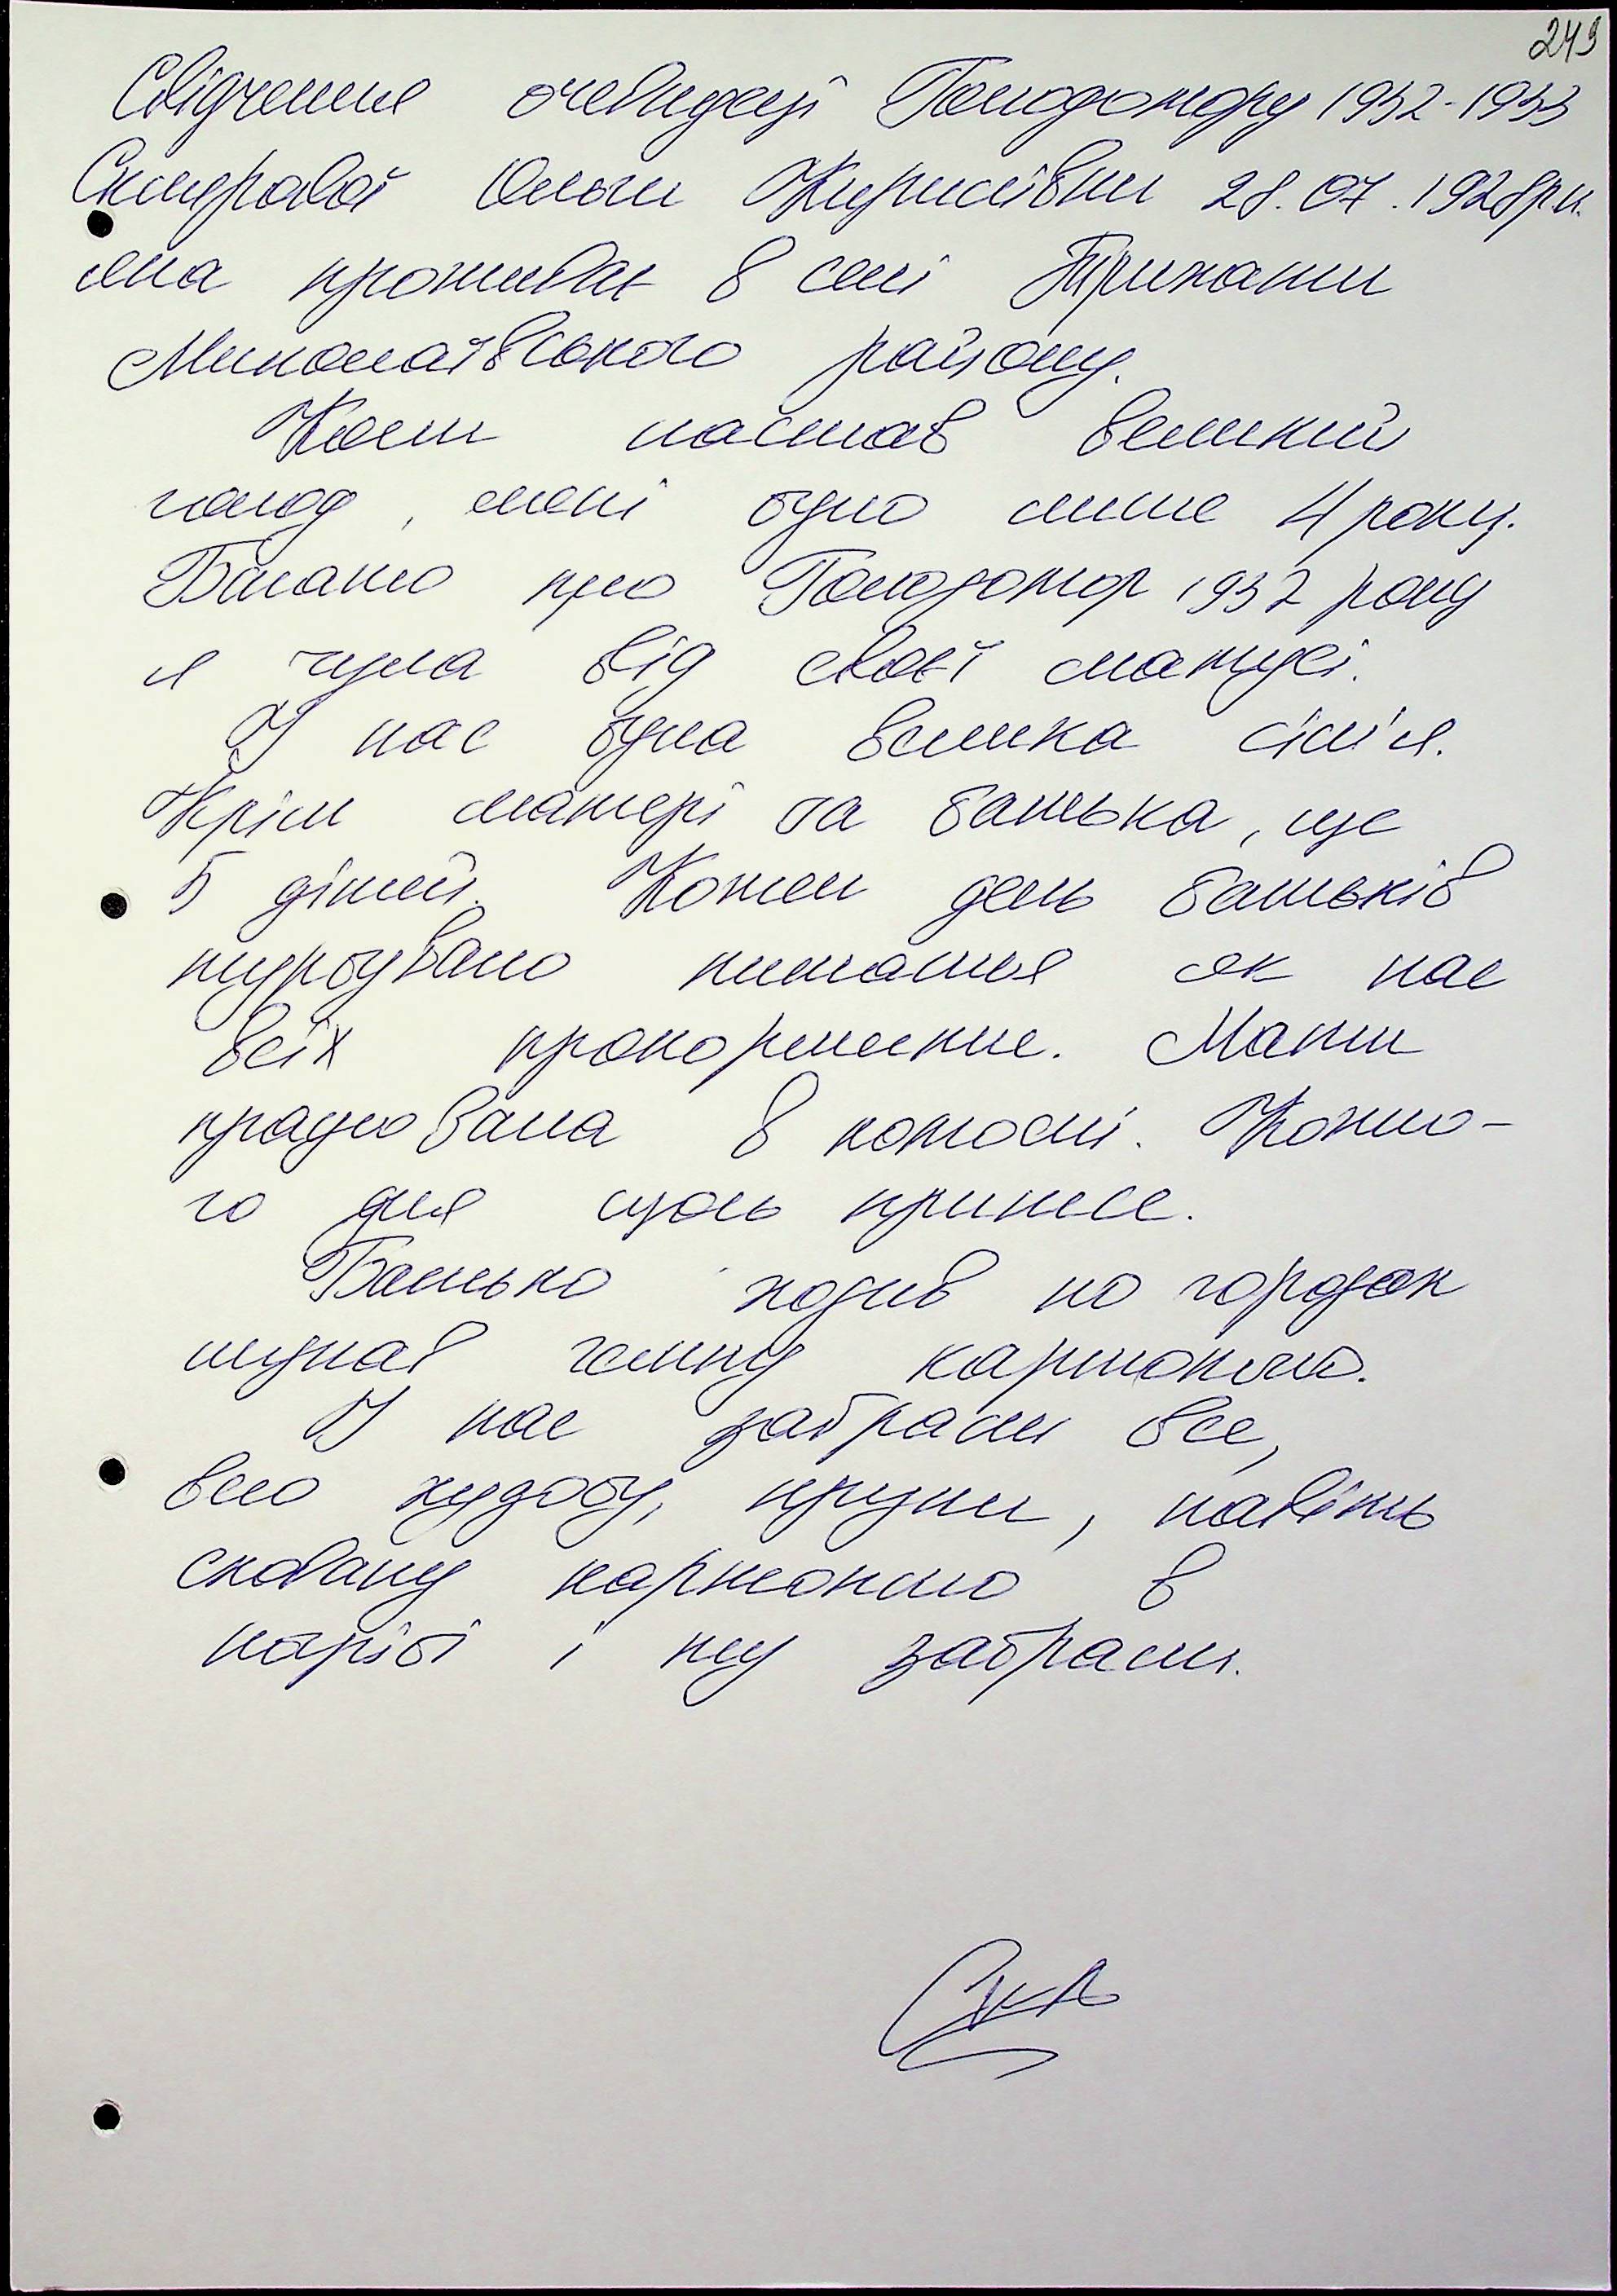 249
Свідчення очевидці Голодомору 1932-1933
Ольги Кирилівни 28.07.1928р.н.
яка проживає в селі Трихати
Миколаївського району.
Коли настав великий
голод, мені було лише 4 роки.
Багато про Голодомор 1932 року
я чула від своєї матусі.
У нас була велика сім'я.
Крім матері та батька, ще
5 дітей. Кожен день батьків
турбувало питання як нас
всіх прокормити. Мати
працювала в колгоспі. Кожно-
го дня щось принесе.
Батько ходив по городах
шукав гнилу картоплю.
У нас забрали все,
всю худобу, крупи, навіть
сховану картоплю в
погрібі і ту забрали.